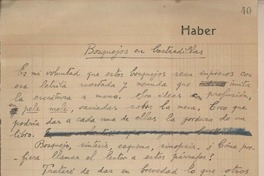 40
Haber
Bosquejos en Contradillas
Es mi voluntad que estos bosquejos sean impresos con
esa letrita recortada y menuda que imita
la escritura a mano. Son ideas en profusión,
en pele mele, vaciadas sobre la mesa. Creo que
podría dar a cada una de ellas la gordura de un
libro.
Bosquejo, síntesis, esquema, sinopsis, ¿Cómo pre-
fiera llamar el lector a estos párrafos?
Trataré de dar en brevedad lo que otros